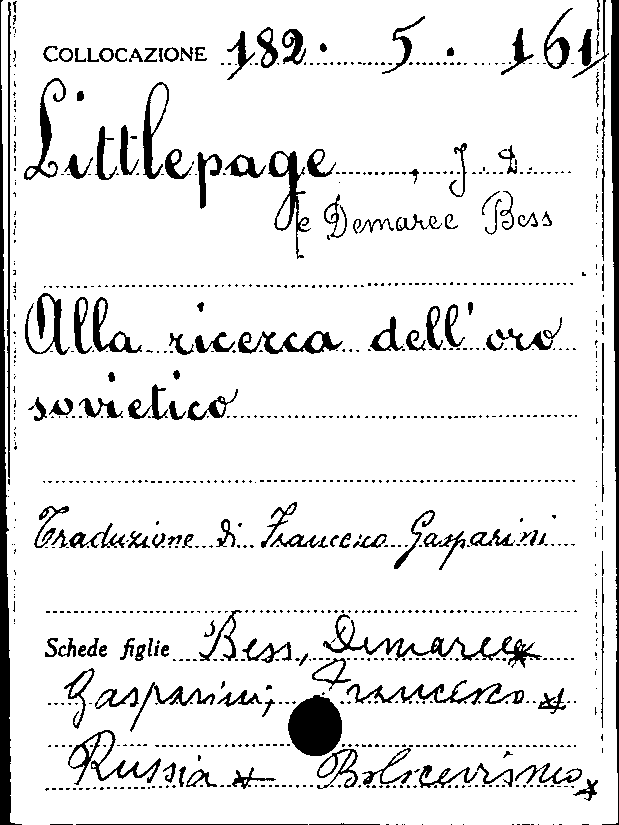 COLLOCAZIONE 182. 5. 161
Littlepage, J. D.
e Demaree Bess
Alla ricerca dell'oro
sovietico
Traduzione di Francesco Gasparini
Schede figlie Bess, Demaree*
Gasparini, Francesco *
Russia * Bolscevismo *